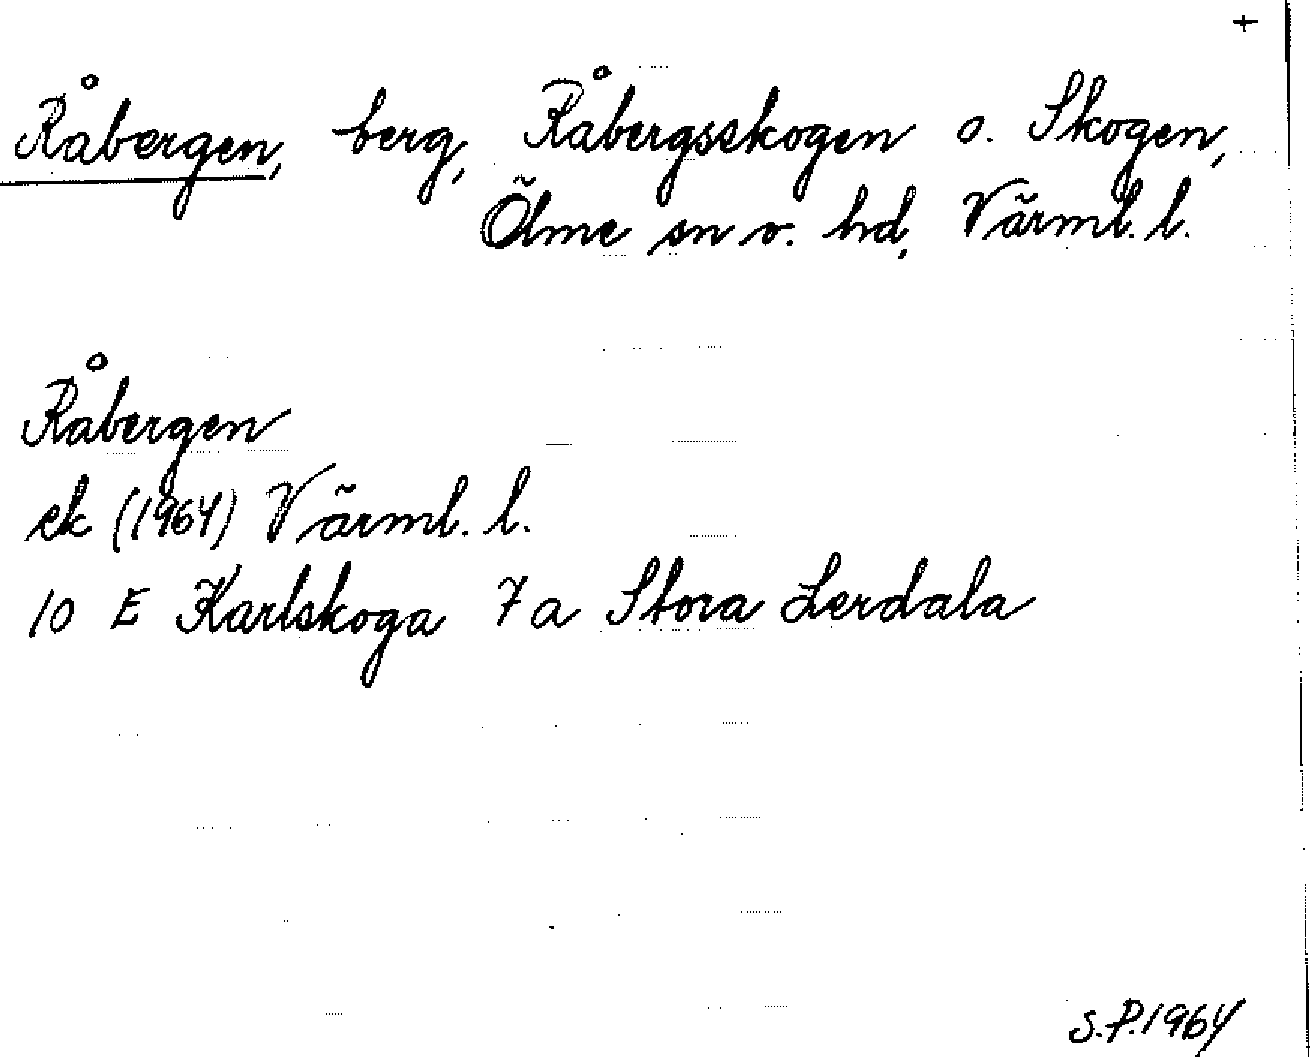 +
Råbergen, berg, Råbergsskogen o. Skogen,
Ölme sn o. hd, Värml. l.
Råbergen
ek (1964) Värml. l.
10 E Karlskoga 7a Stora Lerdala
S.P.1964